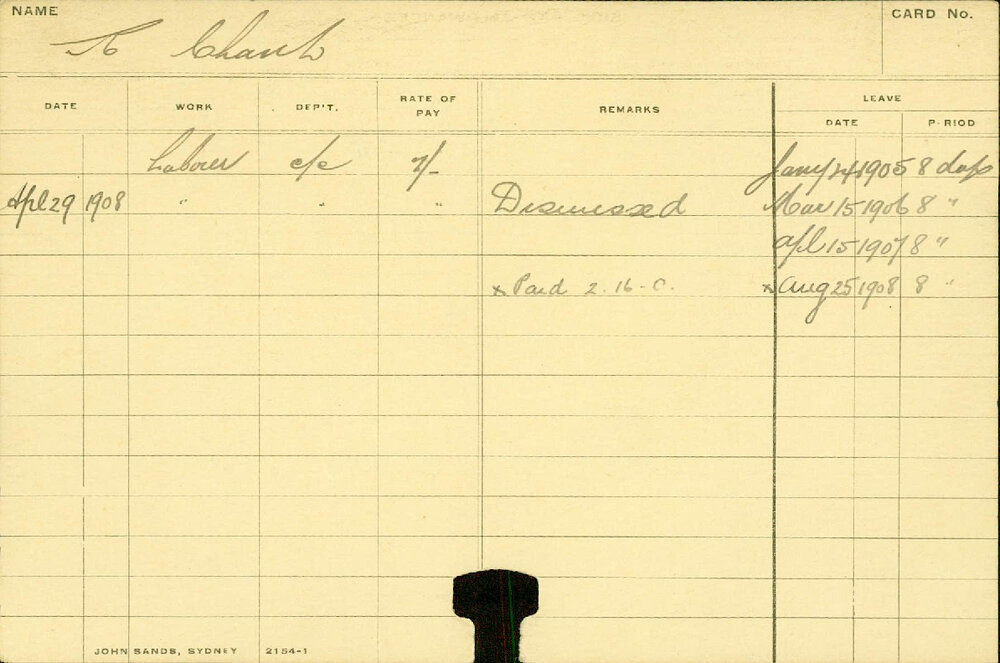 NAME CARD No.
Chant
DATE WORK DEP'T. RATE OF PAY REMARKS LEAVE
DATE P·RIOD
Labourer c/e 7/- Jany 24 1905 8 days
Apl 29 1908 " " " Dismissed Mar 15 1906 8 "
Apl 15 1907 8 "
x Paid 2.16-0. x Aug 25 1908 8 "
JOHN SANDS, SYDNEY 2154-1